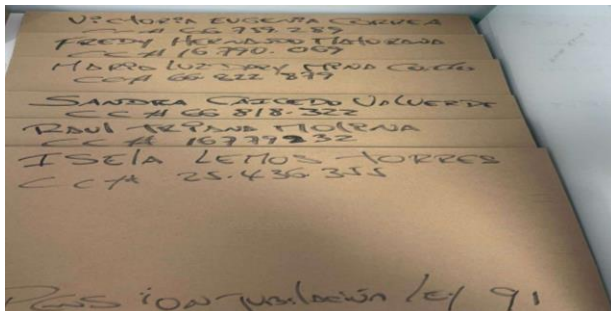 VICTORIA EUGENIA CORREA
CC# 66.759.289
FREDY HERNANDO MATURANA
CC# 16.790.069
MARIA LUZ DARY
CC# 66 222 879
SANDRA CAICEDO VALVERDE
CC# 66 818.322
RAUL TRIANA MOLINA
CC# 16779232
ISELA LEMOS TORRES
CC# 25.436.355
PENSION JUBILACIÓN LEY 91